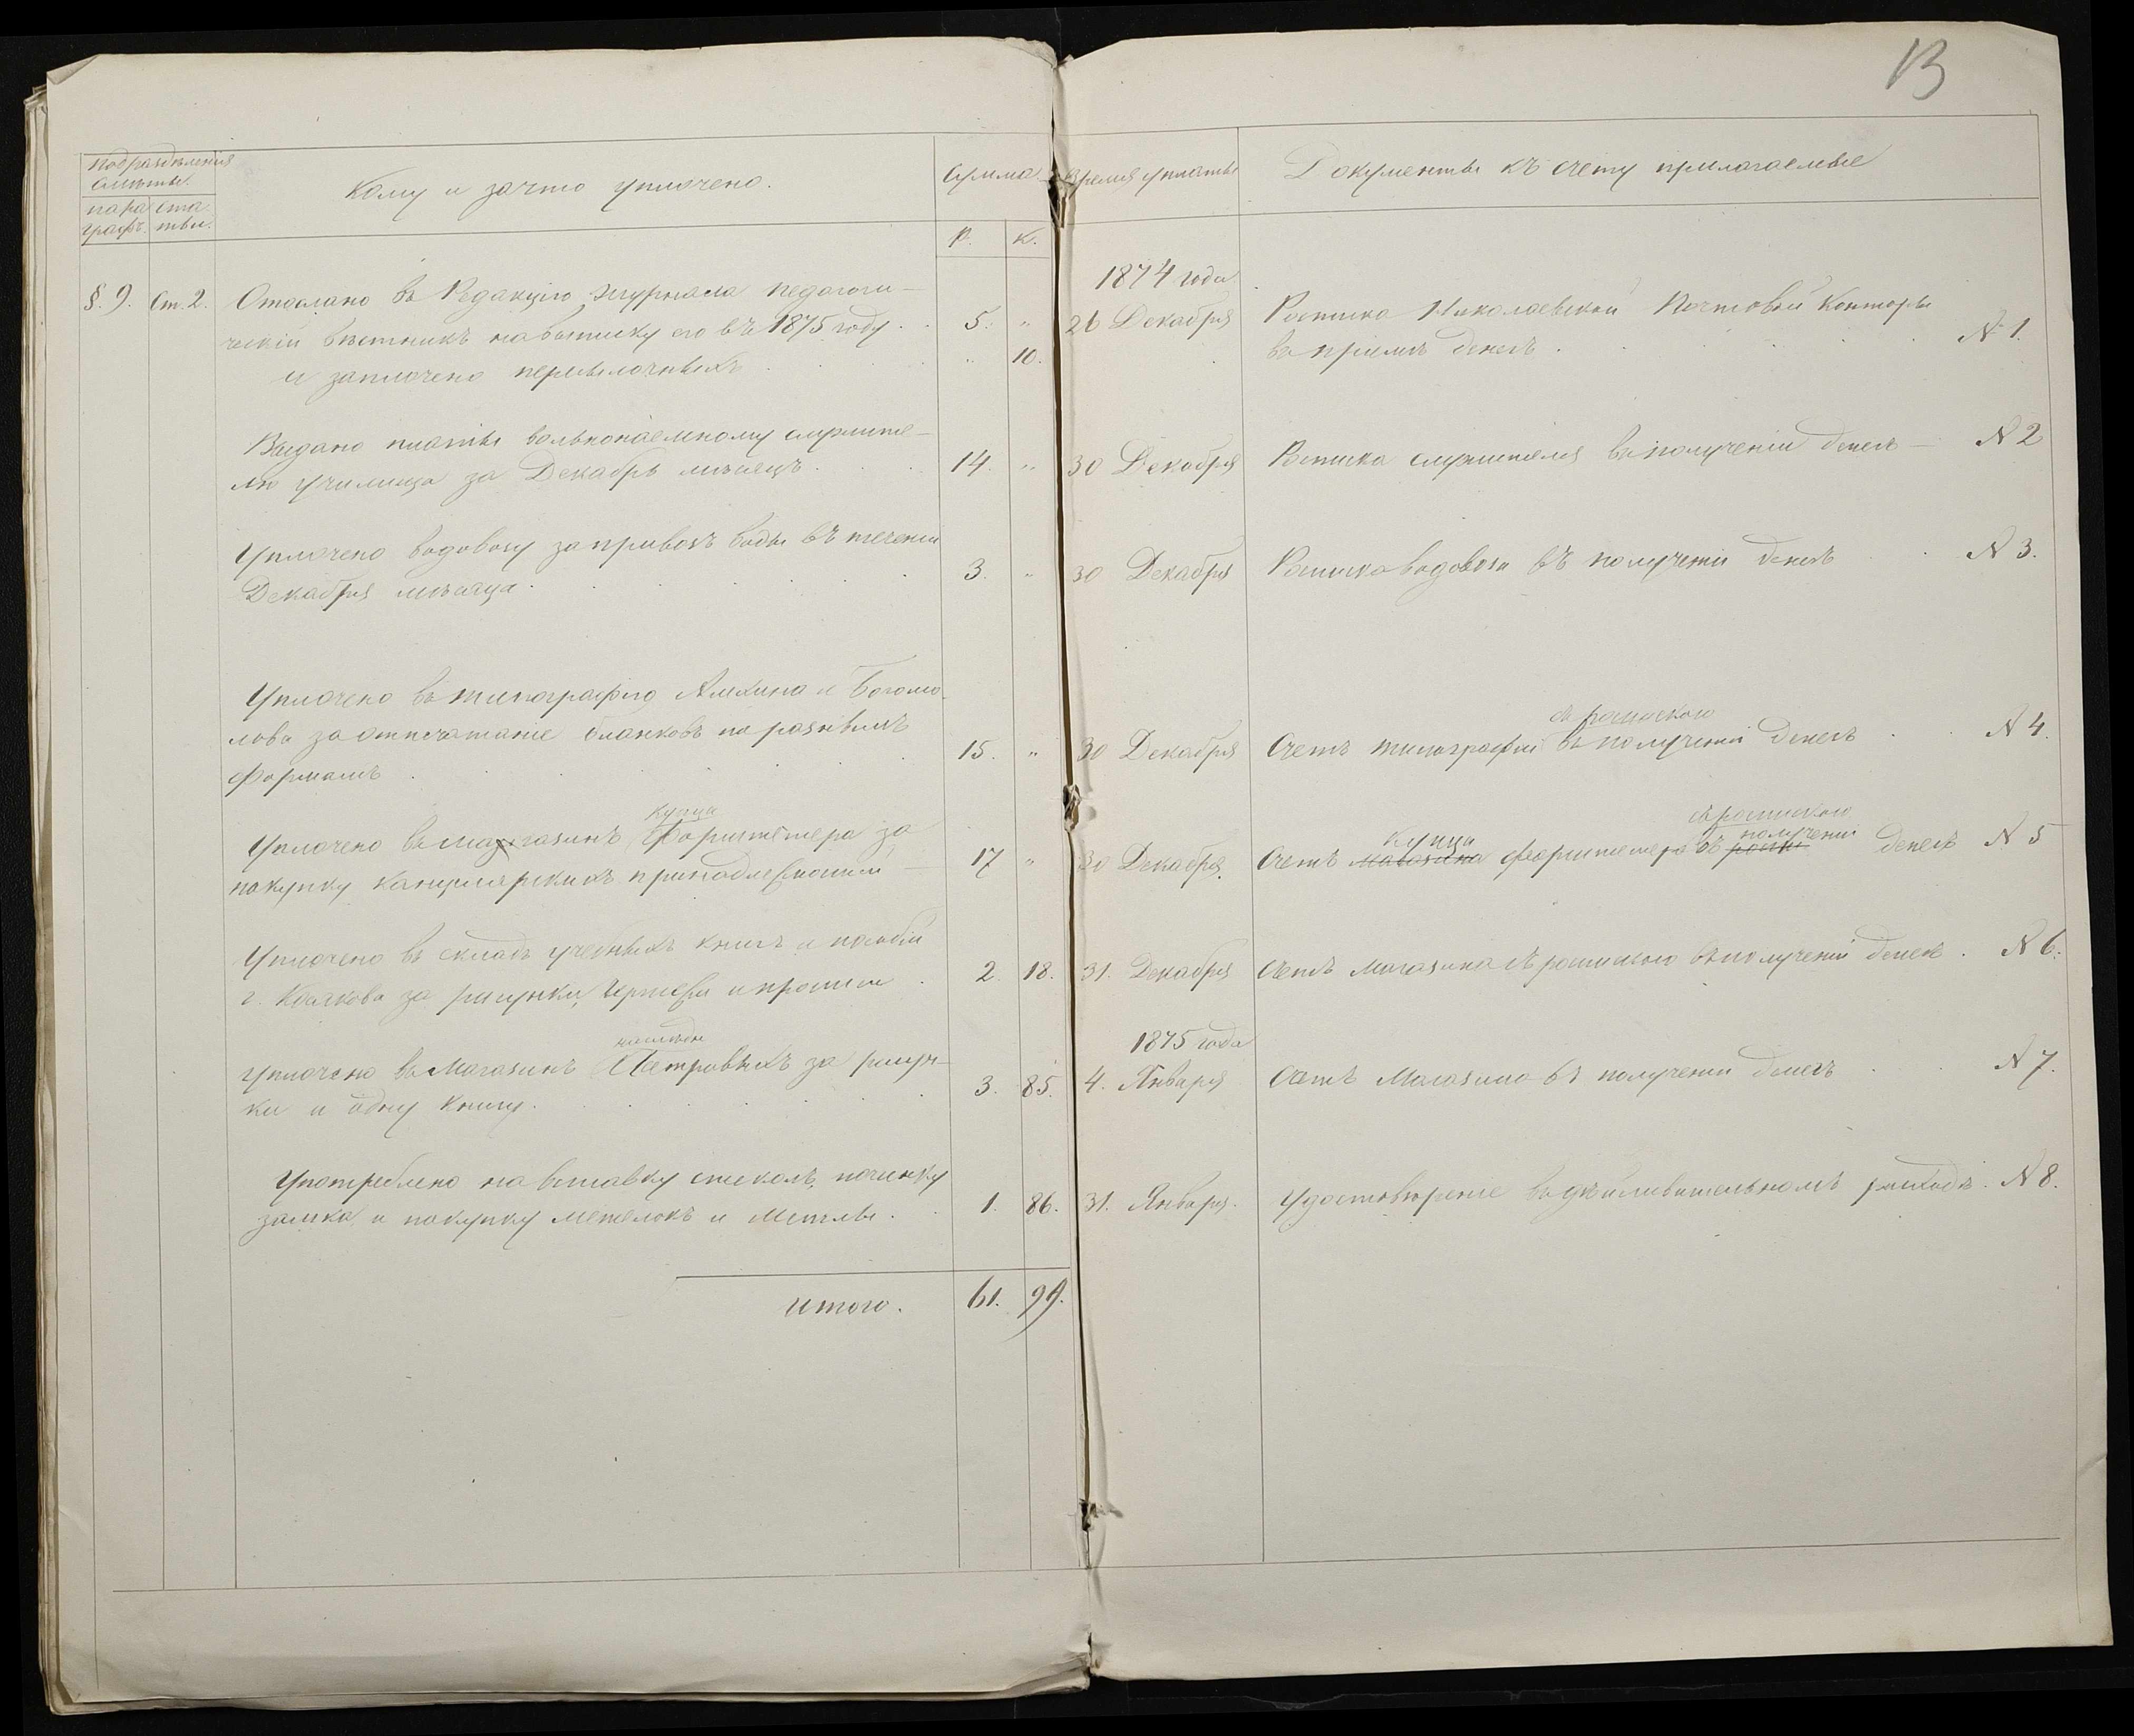 13
Подраздѣленія
смѣты.
пара
графъ.
ста
тьи.
Кому и за что уплочено.
Сумма
Время уплаты
Документы къ счету прилагаемые
Р.
К.
§. 9. Ст. 2. Отослано въ Редакцію журнала педагоги-
ческій вѣстникъ на выписку его въ 1875 году . . 5. "
и заплочено пересылочныхъ . . " 10.
1874 года
26 Декабря Росписка Николаевской Почтовой Конторы
въ пріемѣ денегъ . . . № 1.
Выдано платы вольнонаемному служите-
лю училища за Декабрь мѣсяцъ . . . 14. "
30 Декабря Росписка служителя въ полученіи денегъ — № 2
Уплочено водовозу за привозъ воды въ теченіи
Декабря мѣсяца . . . 3. "
30 Декабря Росписка водовоза въ полученіи денегъ . . № 3.
Уплочено въ типографію и Богомо-
лова за отпечатаніе бланковъ по разнымъ
формамъ . . . 15. "
съ роспискою
30 Декабря Счетъ типографіи въ полученіи денегъ . . № 4.
купца
Уплочено въ магазинъ Форштетера за
покупку канцелярскихъ принадлежностей — 17 "
съ роспискою
Купца
полученіи
30 Декабря. Счетъ магазина Форштетера въ денегъ № 5
Уплочено въ складъ учебныхъ книгъ и пособій
г. за рисунки, чертежи и прописи . 2. 18.
31. Декабря Счетъ Магазина съ роспискою въ полученіи денегъ . № 6.
наслѣдн
Уплочено въ Магазинъ Петровыхъ за рисун-
ки и одну книгу . . . 3. 85.
1875 года
4. Января Счетъ Магазина въ полученіи денегъ . . № 7.
Употреблено на вставку стеколъ, починку
замка и покупку метелокъ и Метлы . . 1. 86.
31. Января. Удостовѣреніе въ дѣйствительномъ расходѣ. № 8.
Итого. 61. 99.